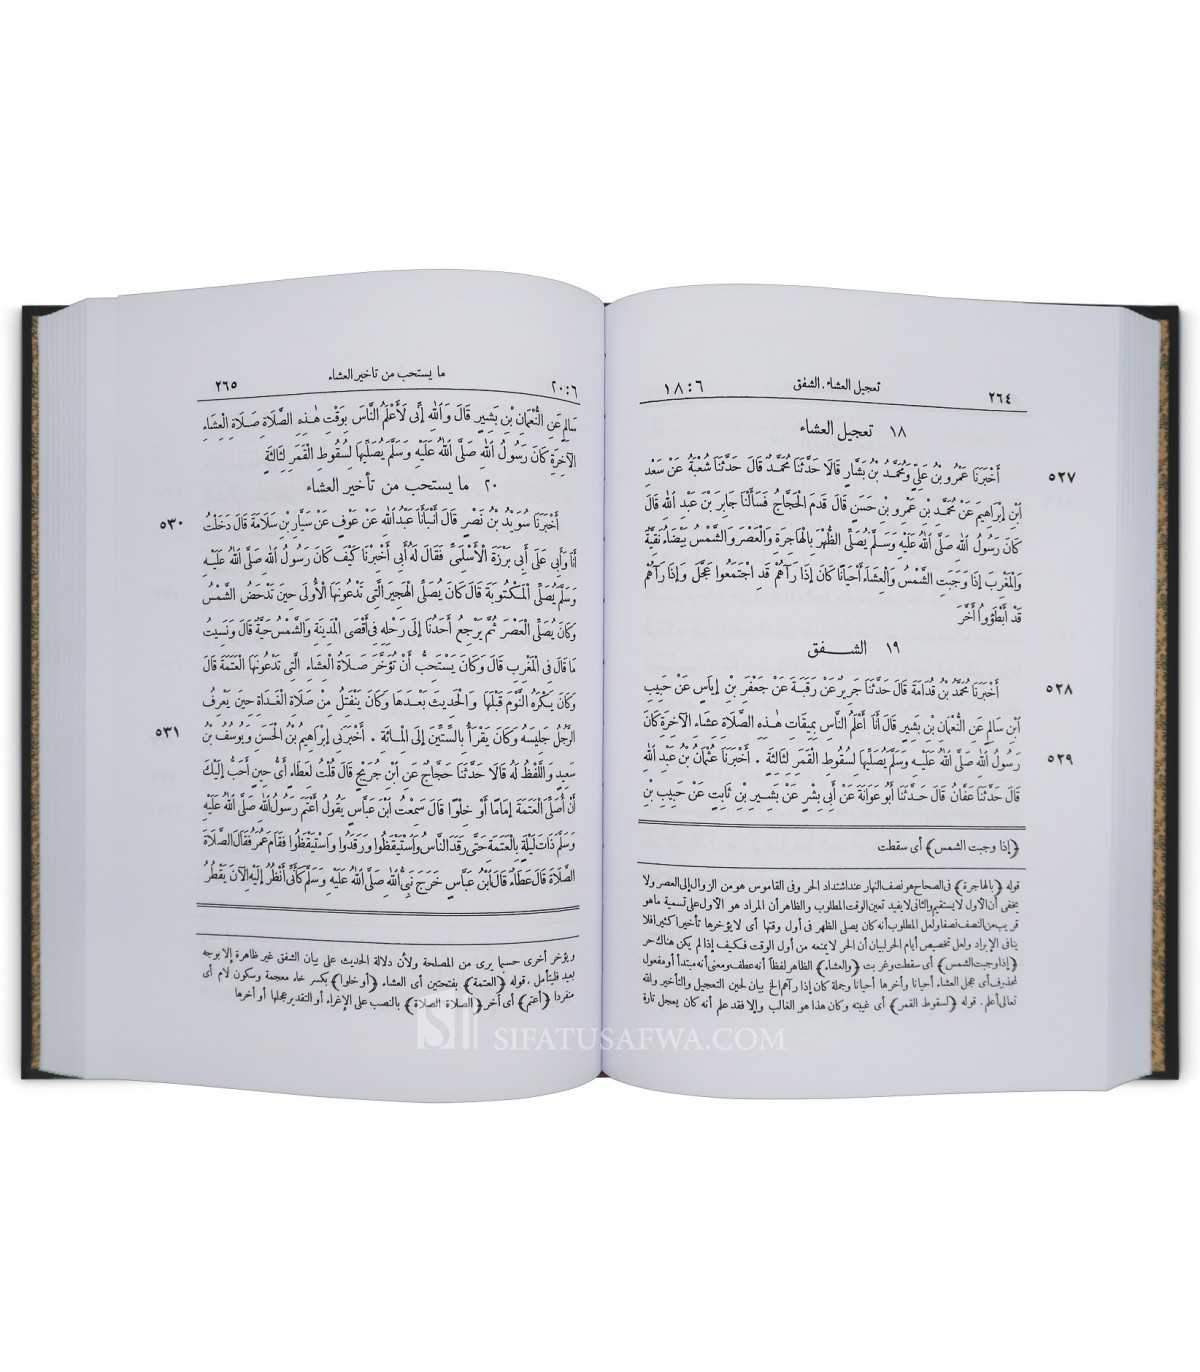 ٢٦٤
تعجيل العشاء. الشفق
١٨:٦
١٨ تعجيل العشاء
٥٢٧
أَخْبَرَنَا عَمْرُو بْنُ عَلِيٍّ وَمُحَمَّدُ بْنُ بَشَّارٍ قَالَا حَدَّثَنَا مُحَمَّدٌ قَالَ حَدَّثَنَا شُعْبَةُ عَنْ سَعْدِ
ابْنِ إِبْرَاهِيمَ عَنْ مُحَمَّدِ بْنِ عَمْرِو بْنِ حَسَنٍ قَالَ قَدِمَ الْحَجَّاجُ فَسَأَلْنَا جَابِرَ بْنَ عَبْدِ اللهِ قَالَ
كَانَ رَسُولُ اللهِ صَلَّى اللهُ عَلَيْهِ وَسَلَّمَ يُصَلِّي الظُّهْرَ بِالْهَاجِرَةِ وَالْعَصْرَ وَالشَّمْسُ بَيْضَاءُ نَقِيَّةٌ
وَالْمَغْرِبَ إِذَا وَجَبَتِ الشَّمْسُ وَالْعِشَاءَ أَحْيَانًا كَانَ إِذَا رَآهُمْ قَدِ اجْتَمَعُوا عَجَّلَ وَإِذَا رَآهُمْ
قَدْ أَبْطَؤُوا أَخَّرَ
١٩ الشفق
٥٢٨
أَخْبَرَنَا مُحَمَّدُ بْنُ قُدَامَةَ قَالَ حَدَّثَنَا جَرِيرٌ عَنْ رَقَبَةَ عَنْ جَعْفَرِ بْنِ إِيَاسٍ عَنْ حَبِيبِ
ابْنِ سَالِمٍ عَنِ النُّعْمَانِ بْنِ بَشِيرٍ قَالَ أَنَا أَعْلَمُ النَّاسِ بِمِيقَاتِ هٰذِهِ الصَّلَاةِ عِشَاءِ الْآخِرَةِ كَانَ
٥٢٩
رَسُولُ اللهِ صَلَّى اللهُ عَلَيْهِ وَسَلَّمَ يُصَلِّيهَا لِسُقُوطِ الْقَمَرِ لِثَالِثَةٍ . أَخْبَرَنَا عُثْمَانُ بْنُ عَبْدِ اللهِ
قَالَ حَدَّثَنَا عَفَّانُ قَالَ حَدَّثَنَا أَبُو عَوَانَةَ عَنْ أَبِي بِشْرٍ عَنْ بَشِيرِ بْنِ ثَابِتٍ عَنْ حَبِيبِ بْنِ
﴿إذا وجبت الشمس﴾ أى سقطت
قوله ﴿بالهاجرة﴾ فى الصحاح هو نصف النهار عند اشتداد الحر وفى القاموس هو من الزوال إلى العصر ولا
يخفى أن الأول لا يستقيم والثانى لا يفيد تعين الوقت المطلوب والظاهر أن المراد هو الأول على تسمية ما هو
قريب من النصف نصفا ولعل المطلوب أنه كان يصلى الظهر فى أول وقتها أى لا يؤخرها تأخيرا كثيرا فلا
ينافى الإبراد ولعل تخصيص أيام الحر لبيان أن الحر لا يمنعه من أول الوقت فكيف إذا لم يكن هناك حر
﴿إذا وجبت الشمس﴾ أى سقطت وغربت ﴿والعشاء﴾ الظاهر لفظا أنه عطف ومعنى أنه مبتدأ أو مفعول
لمحذوف أى عجل العشاء أحيانا وأخرها أحيانا وجملة كان إذا رآهم الخ بيان لحين التعجيل والتأخير والله
تعالى أعلم . قوله ﴿لسقوط القمر﴾ أى غيبته وكان هذا هو الغالب وإلا فقد علم أنه كان يعجل تارة
٢٠:٦
ما يستحب من تأخير العشاء
٢٦٥
سَالِمٍ عَنِ النُّعْمَانِ بْنِ بَشِيرٍ قَالَ وَاللهِ إِنِّي لَأَعْلَمُ النَّاسِ بِوَقْتِ هٰذِهِ الصَّلَاةِ صَلَاةِ الْعِشَاءِ
الْآخِرَةِ كَانَ رَسُولُ اللهِ صَلَّى اللهُ عَلَيْهِ وَسَلَّمَ يُصَلِّيهَا لِسُقُوطِ الْقَمَرِ لِثَالِثَةٍ
٢٠ ما يستحب من تأخير العشاء
٥٣٠
أَخْبَرَنَا سُوَيْدُ بْنُ نَصْرٍ قَالَ أَنْبَأَنَا عَبْدُ اللهِ عَنْ عَوْفٍ عَنْ سَيَّارِ بْنِ سَلَامَةَ قَالَ دَخَلْتُ
أَنَا وَأَبِي عَلَى أَبِي بَرْزَةَ الْأَسْلَمِيِّ فَقَالَ لَهُ أَبِي أَخْبِرْنَا كَيْفَ كَانَ رَسُولُ اللهِ صَلَّى اللهُ عَلَيْهِ
وَسَلَّمَ يُصَلِّي الْمَكْتُوبَةَ قَالَ كَانَ يُصَلِّي الْهَجِيرَ الَّتِي تَدْعُونَهَا الْأُولَى حِينَ تَدْحَضُ الشَّمْسُ
وَكَانَ يُصَلِّي الْعَصْرَ ثُمَّ يَرْجِعُ أَحَدُنَا إِلَى رَحْلِهِ فِي أَقْصَى الْمَدِينَةِ وَالشَّمْسُ حَيَّةٌ قَالَ وَنَسِيتُ
مَا قَالَ فِي الْمَغْرِبِ قَالَ وَكَانَ يَسْتَحِبُّ أَنْ تُؤَخَّرَ صَلَاةُ الْعِشَاءِ الَّتِي تَدْعُونَهَا الْعَتَمَةَ قَالَ
وَكَانَ يَكْرَهُ النَّوْمَ قَبْلَهَا وَالْحَدِيثَ بَعْدَهَا وَكَانَ يَنْفَتِلُ مِنْ صَلَاةِ الْغَدَاةِ حِينَ يَعْرِفُ
٥٣١
الرَّجُلُ جَلِيسَهُ وَكَانَ يَقْرَأُ بِالسِّتِّينَ إِلَى الْمِائَةِ . أَخْبَرَنِي إِبْرَاهِيمُ بْنُ الْحَسَنِ وَيُوسُفُ بْنُ
سَعِيدٍ وَاللَّفْظُ لَهُ قَالَا حَدَّثَنَا حَجَّاجٌ عَنِ ابْنِ جُرَيْجٍ قَالَ قُلْتُ لِعَطَاءٍ أَيُّ حِينٍ أَحَبُّ إِلَيْكَ
أَنْ أُصَلِّيَ الْعَتَمَةَ إِمَامًا أَوْ خِلْوًا قَالَ سَمِعْتُ ابْنَ عَبَّاسٍ يَقُولُ أَعْتَمَ رَسُولُ اللهِ صَلَّى اللهُ عَلَيْهِ
وَسَلَّمَ ذَاتَ لَيْلَةٍ بِالْعَتَمَةِ حَتَّى رَقَدَ النَّاسُ وَاسْتَيْقَظُوا وَرَقَدُوا وَاسْتَيْقَظُوا فَقَامَ عُمَرُ فَقَالَ الصَّلَاةَ
الصَّلَاةَ قَالَ عَطَاءٌ قَالَ ابْنُ عَبَّاسٍ خَرَجَ نَبِيُّ اللهِ صَلَّى اللهُ عَلَيْهِ وَسَلَّمَ كَأَنِّي أَنْظُرُ إِلَيْهِ الْآنَ يَقْطُرُ
ويؤخر أخرى حسبما يرى من المصلحة ولأن دلالة الحديث على بيان الشفق غير ظاهرة إلا بوجه
بعيد فليتأمل . قوله ﴿العتمة﴾ بفتحتين أى العشاء . ﴿أو خلوا﴾ بكسر خاء معجمة وسكون لام أى
منفردا ﴿أعتم﴾ أى أخر ﴿الصلاة الصلاة﴾ بالنصب على الإغراء أو التقدير عجلها أو أخرها
SIFATUSAFWA.COM